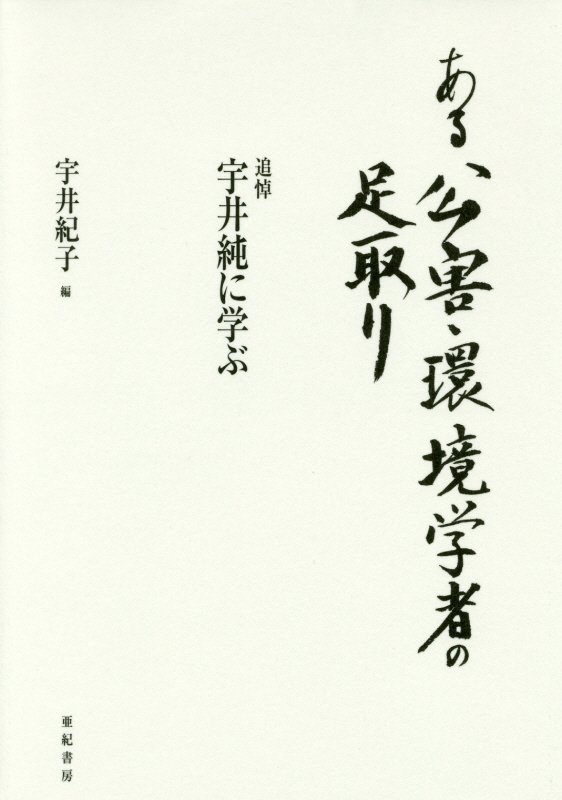 ある公害・環境学者の
足取り
追悼
宇井純に学ぶ
宇井紀子 編
亜紀書房